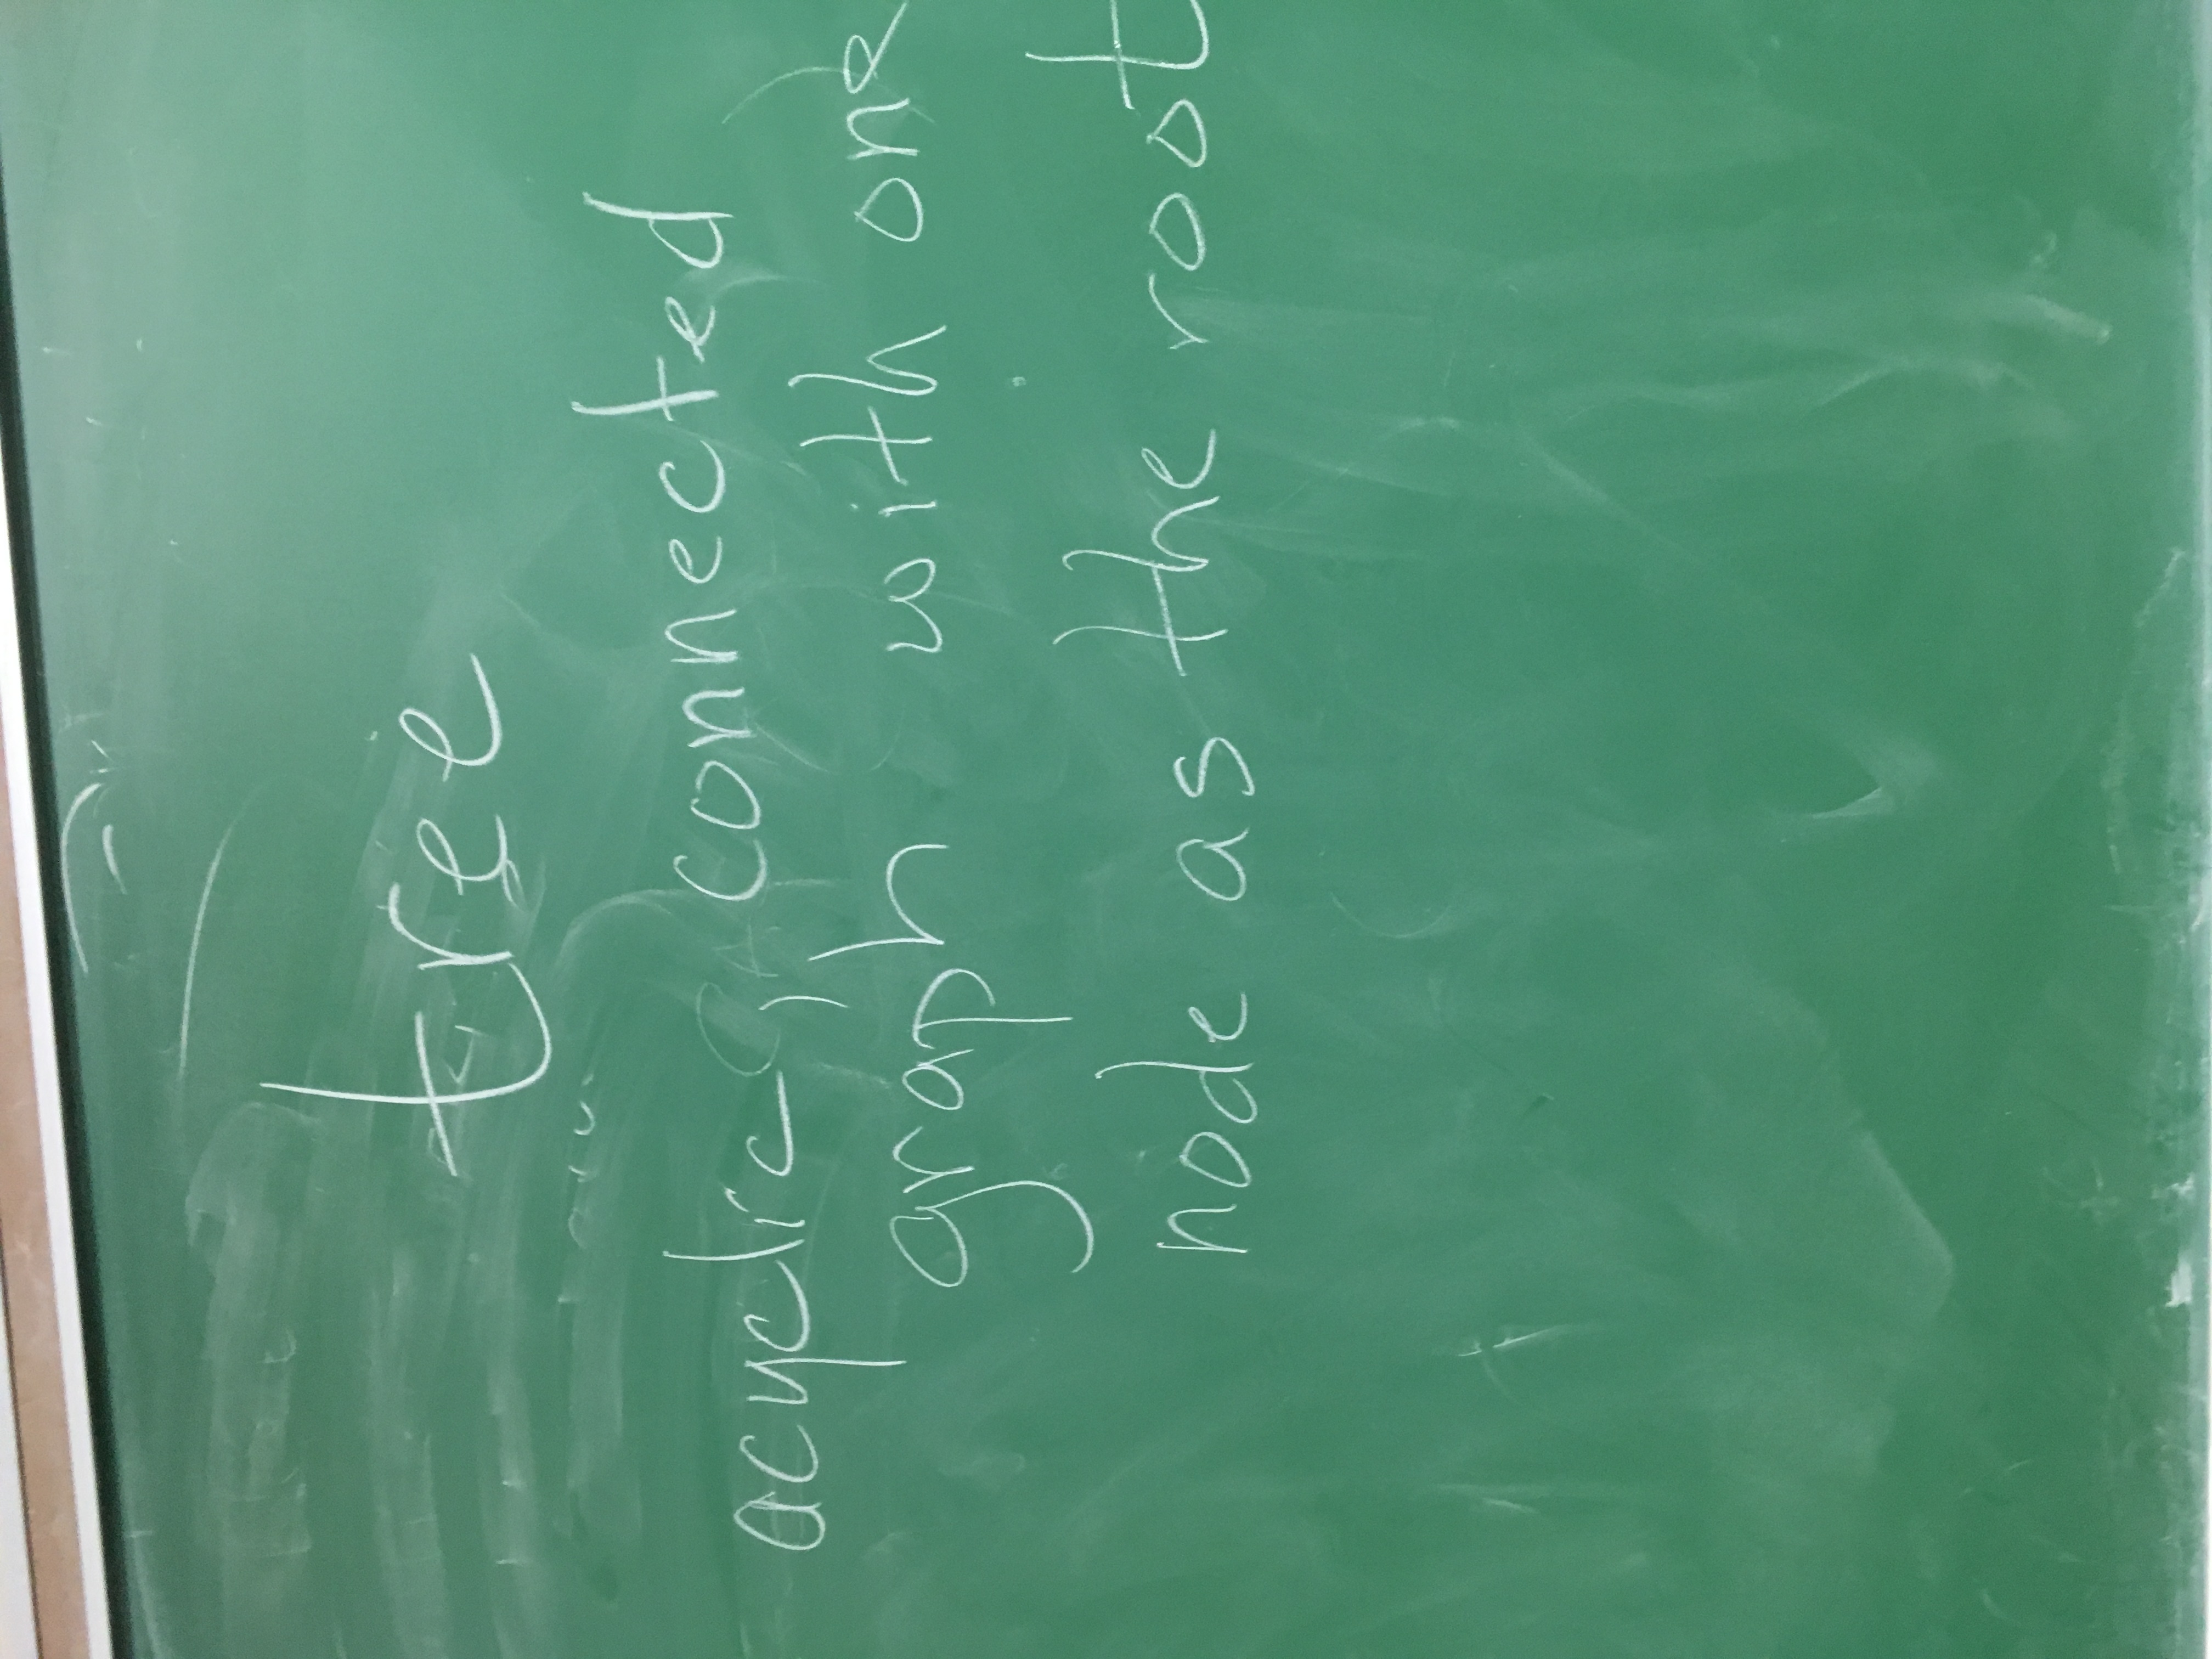 tree
acyclic connected
graph with one
node as the root